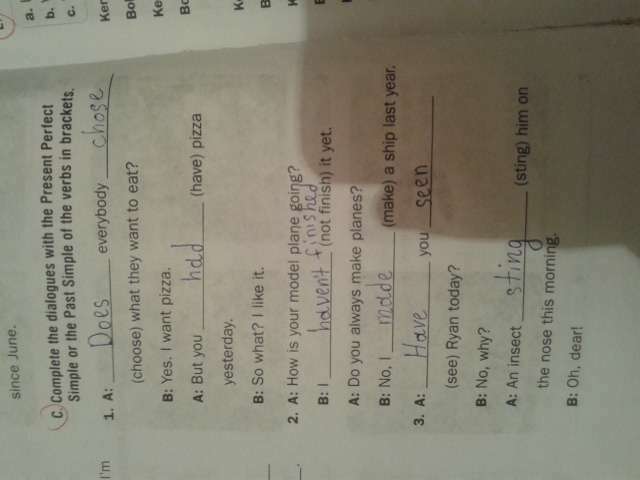 since June.
C. Complete the dialogues with the Present Perfect
Simple or the Past Simple of the verbs in brackets.
I'm
1. A: Does everybody chose
(choose) what they want to eat?
B: Yes. I want pizza.
A: But you had (have) pizza
yesterday.
B: So what? I like it.
2. A: How is your model plane going?
B: I havent finished (not finish) it yet.
A: Do you always make planes?
B: No, I made (make) a ship last year.
3. A: Have you seen
(see) Ryan today?
B: No, why?
A: An insect sting (sting) him on
the nose this morning.
B: Oh, dear!
a.
b.
c.
Ker
Bol
Ke